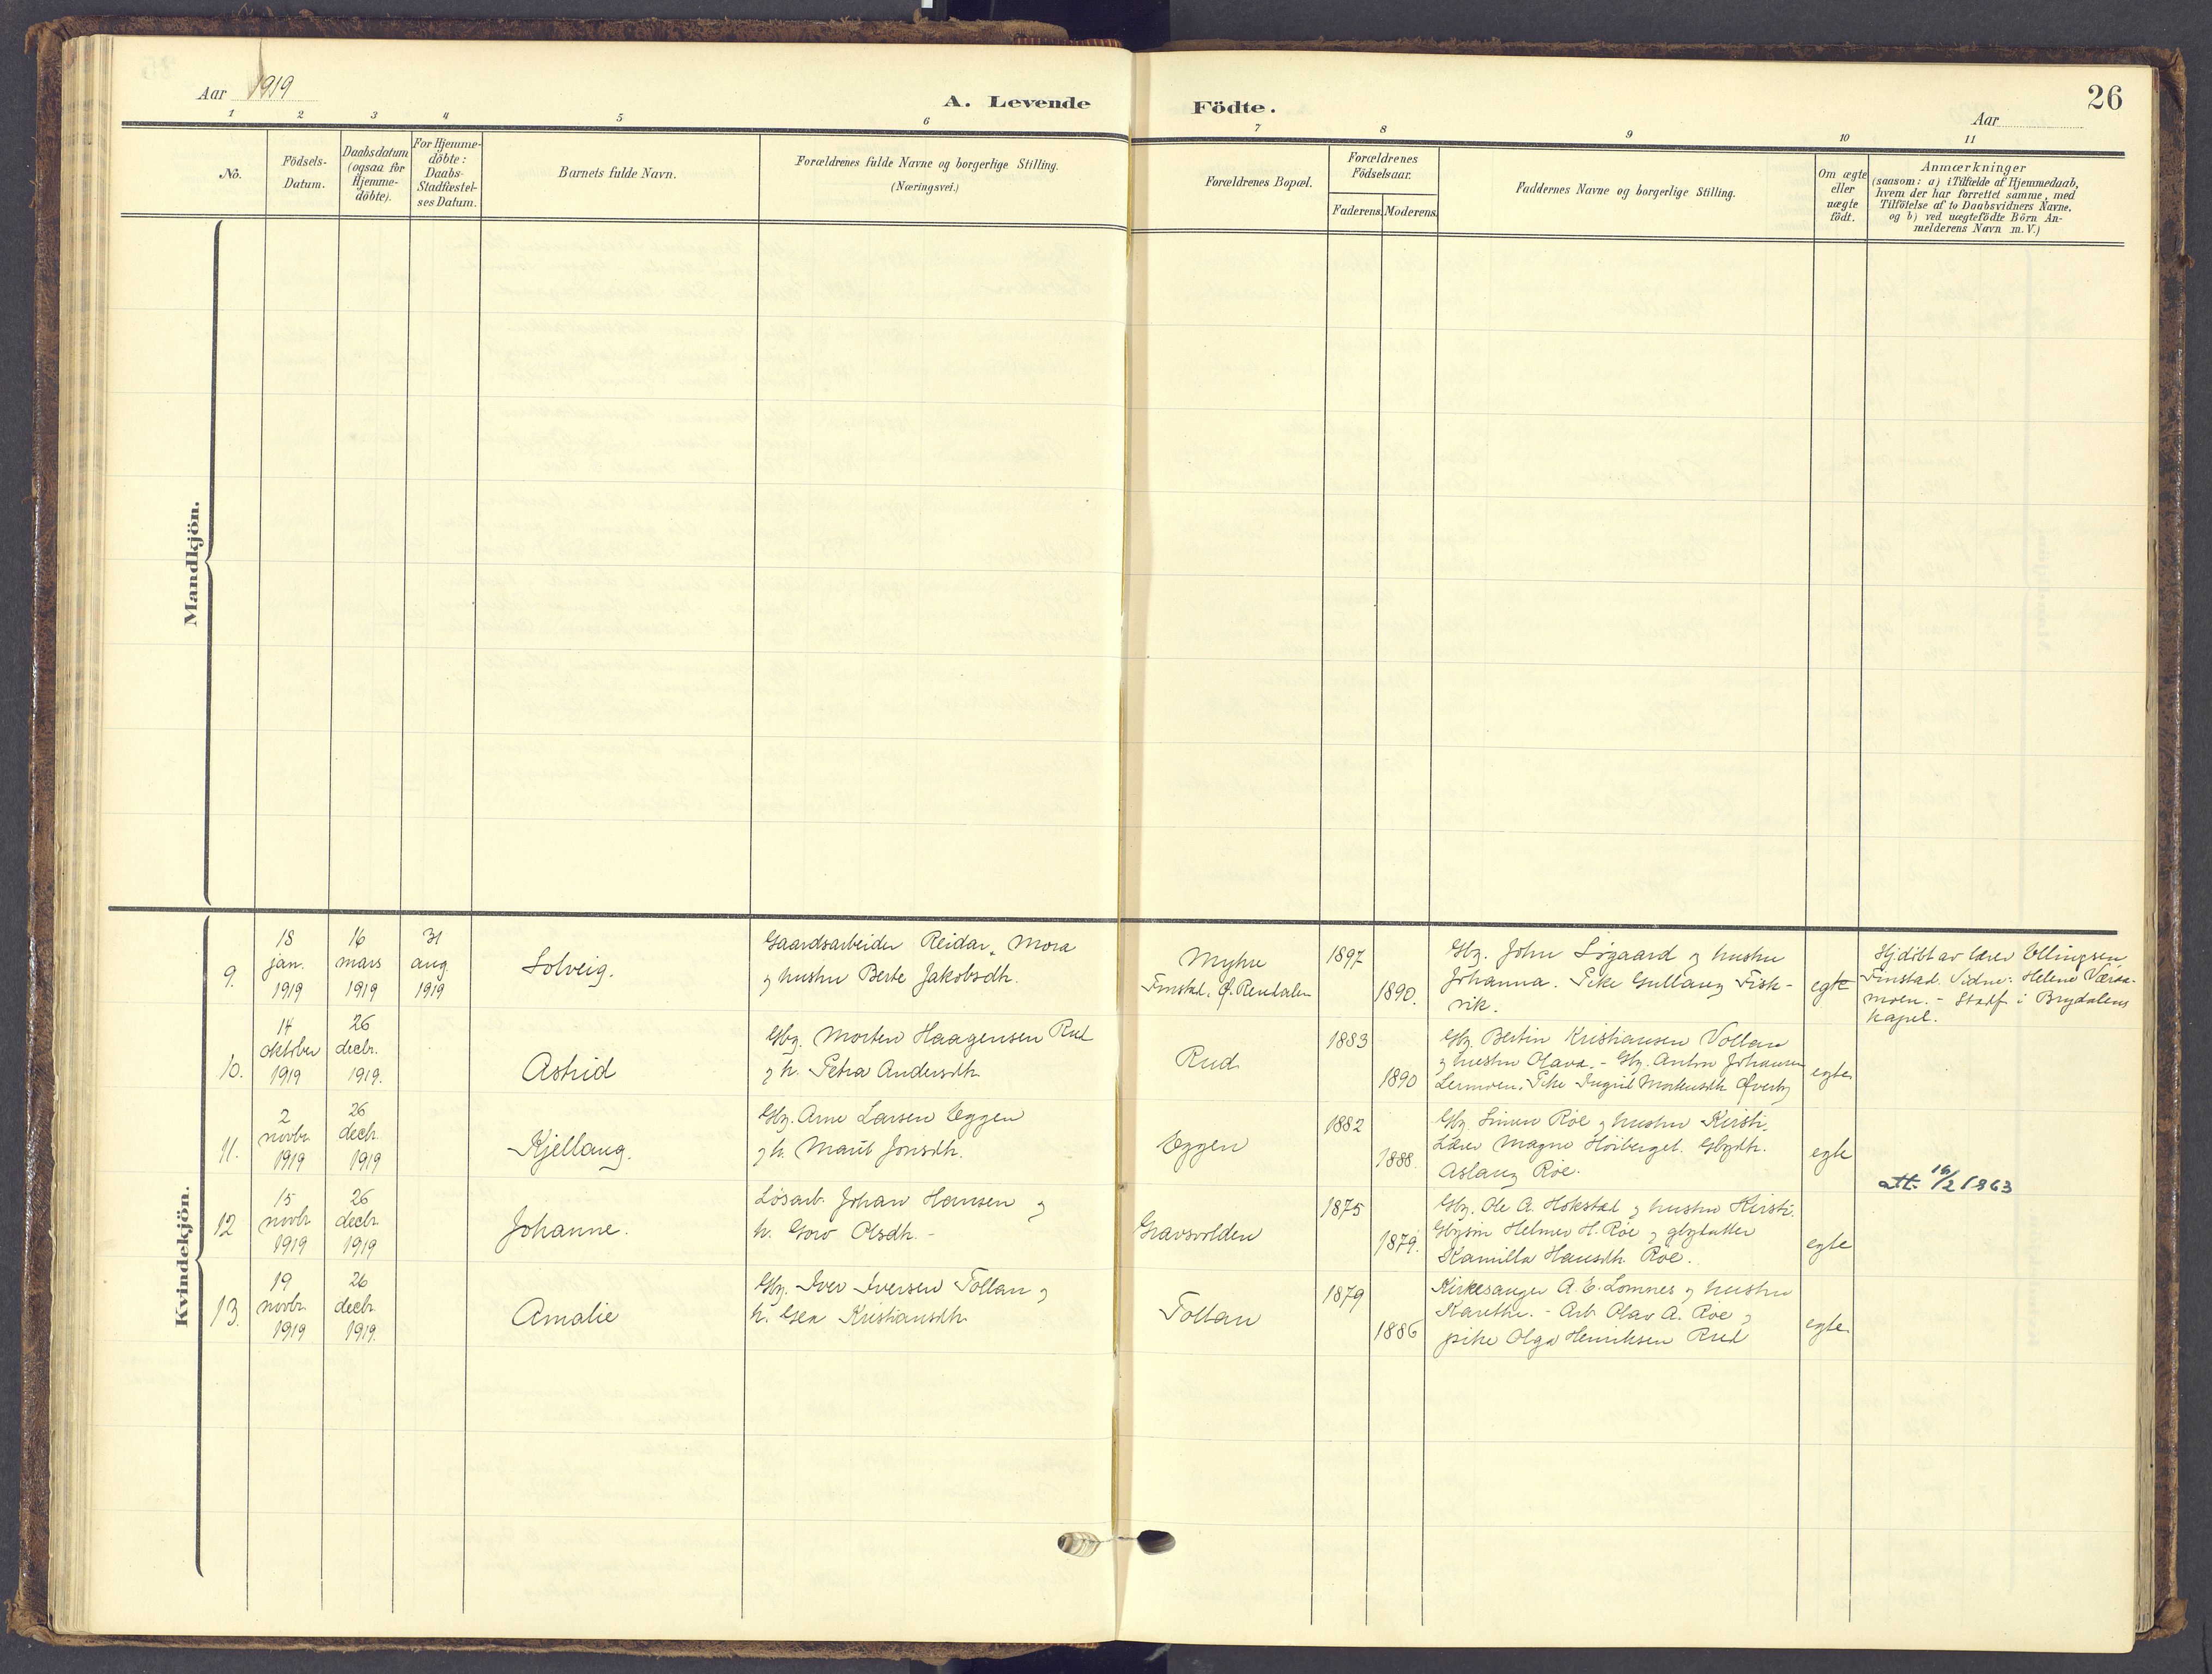 Aar 1919
A. Levende
Födte.
Aar
26
1 2 3 4 5 6 7 8 9 10 11
No.
Födsels-
Datum.
Daabsdatum
(ogsaa for
Hjemme-
döbte).
For Hjemme-
döbte:
Daabs-
Stadfæstel-
ses Datum.
Barnets fulde Navn.
Forældrenes fulde Navne og borgerlige Stilling.
(Næringsvei.)
Forældrenes Bopæl.
Forældrenes
Födselsaar.
Faderens. Moderens.
Faddernes Navne og borgerlige Stilling.
Om ægte
eller
uægte
födt.
Anmærkninger
(saasom: a) i Tilfælde af Hjemmedaab,
hvem der har forrettet samme, med
Tilföielse af to Daabsvidners Navne,
og b) ved uægtefödte Börn An-
melderens Navn m. V.)
Mandkjön.
Kvindekjön.
9.
18
jan.
1919
16
mars
1919
31
aug.
1919
Solveig.
Gaardsarbeider Reidar Mora
og hustru Berte Jakobsdtr.
Myhre
Finstad, Ø. Rendalen
1897
1890.
Gbr. John Løgaard og hustru
Johanna. Pike Gullaug Fisk-
vik.
egte
Hj.döbt av lærer Ellingsen,
Finstad. Vidne: HeleneVæraa-
moen. - Stadf. i Brydalens
kapel.
10.
14
oktober
1919
26
decbr.
1919.
Astrid
Gbr. Morten Haagensen Rud
og h. Petra Andersdtr.
Rud
1883
1890
Gbr. Bertin Kristiansen Vollan
og hustru Olava. - Gbr. Anton Johansen
Lermoen. Pike Ingrid Morkusdtr Øverby
egte
11.
2
novbr.
1919
26
decbr.
1919
Kjellaug.
Gbr. Arne Larsen Eggen
og h. Marit Jonsdtr.
Eggen
1882
1888.
Gbr. Simen Röe og hustru Kirsti.
Lærer Magne Höiberget. Gbrdtr.
Aslaug Röe.
egte
att. 19/2 1963
12
15
novbr.
1919
26
decbr.
1919
Johanne.
Løsarb. Johan Hansen og
h. Goro Olsdtr. -
Gravsvolden
1875
1879.
Gbr. Ole A. Hokstad og hustru Kirsti.
Gbrsön Helmer H. Röe og gbrdatter
Kamilla Hansdtr. Röe.
egte
13.
19
novbr.
1919
26
decbr.
1919.
Amalie
Gbr. Iver Iversen Tollan og
h. Gea Kristiansdtr.
Tollan
1879
1886
Kirkesanger A. E. Lomnes og hustru
Karethe. - Arb. Olav A. Röe og
pike Olga Henriksen Rud
egte